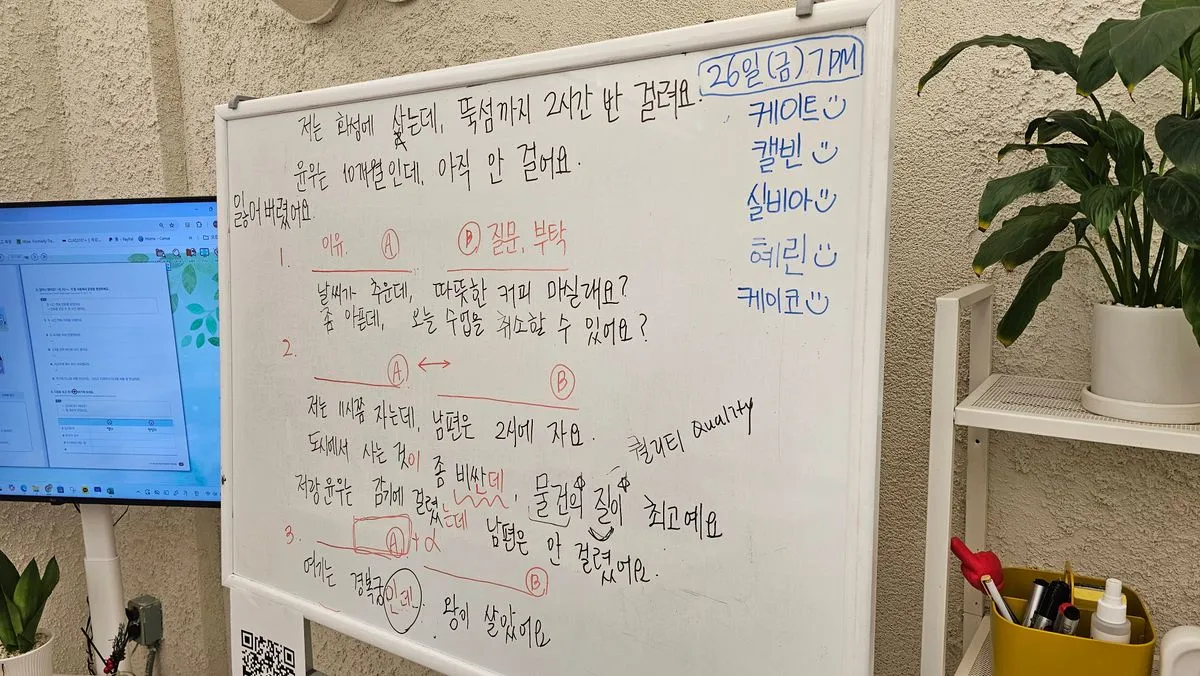 저는 화성에 살는데, 뚝섬까지 2시간 반 걸려요.
윤우는 10개월인데, 아직 안 걸어요.
잃어버렸어요.
1. 이유. Ⓐ Ⓑ 질문, 부탁
날씨가 추운데, 따뜻한 커피 마실래요?
좀 아픈데, 오늘 수업을 취소할 수 있어요?
2. Ⓐ ↔ Ⓑ
저는 11시쯤 자는데, 남편은 2시에 자요.
도시에서 사는 것이 좀 비싼데, 물건의 질이 최고예요
퀄리티 Quality
저랑 윤우는 감기에 걸렸는데 남편은 안 걸렸어요.
3. Ⓐ+α Ⓑ
여기는 경복궁인데. 왕이 살았어요
26일(금) 7PM
케이트
캘빈
실비아
혜린
케이코